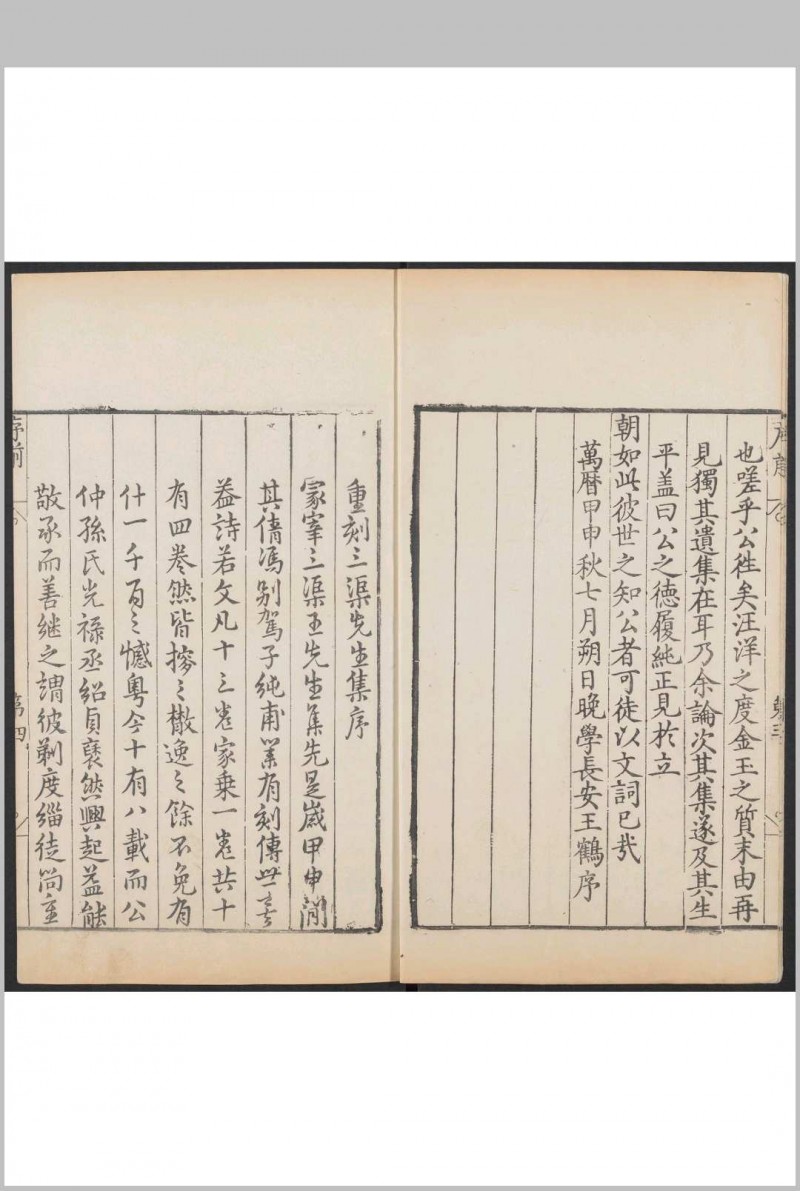 也嗟乎公徃矣汪洋之度金玉之質末由再
見獨其遺集在耳乃余論次其集遂及其生
平盖曰公之德履純正見於立
朝如此彼世之知公者可徒以文詞已哉
萬曆甲申秋七月朔日晚學長安王鶴序
重刻三渠先生集序
冢宰三渠王先生集先是歲甲申
其倩馮别駕子純甫業有刻傳世
益詩若文凡十三卷家乗一卷共十
有四卷然皆㨿之散逸之餘不免有
什一千百之憾粤今十有八載而公
仲孫氏光禄丞紹貞褎然興起益能
敬承而善繼之謂彼剃度緇徒尚重
序前
第四